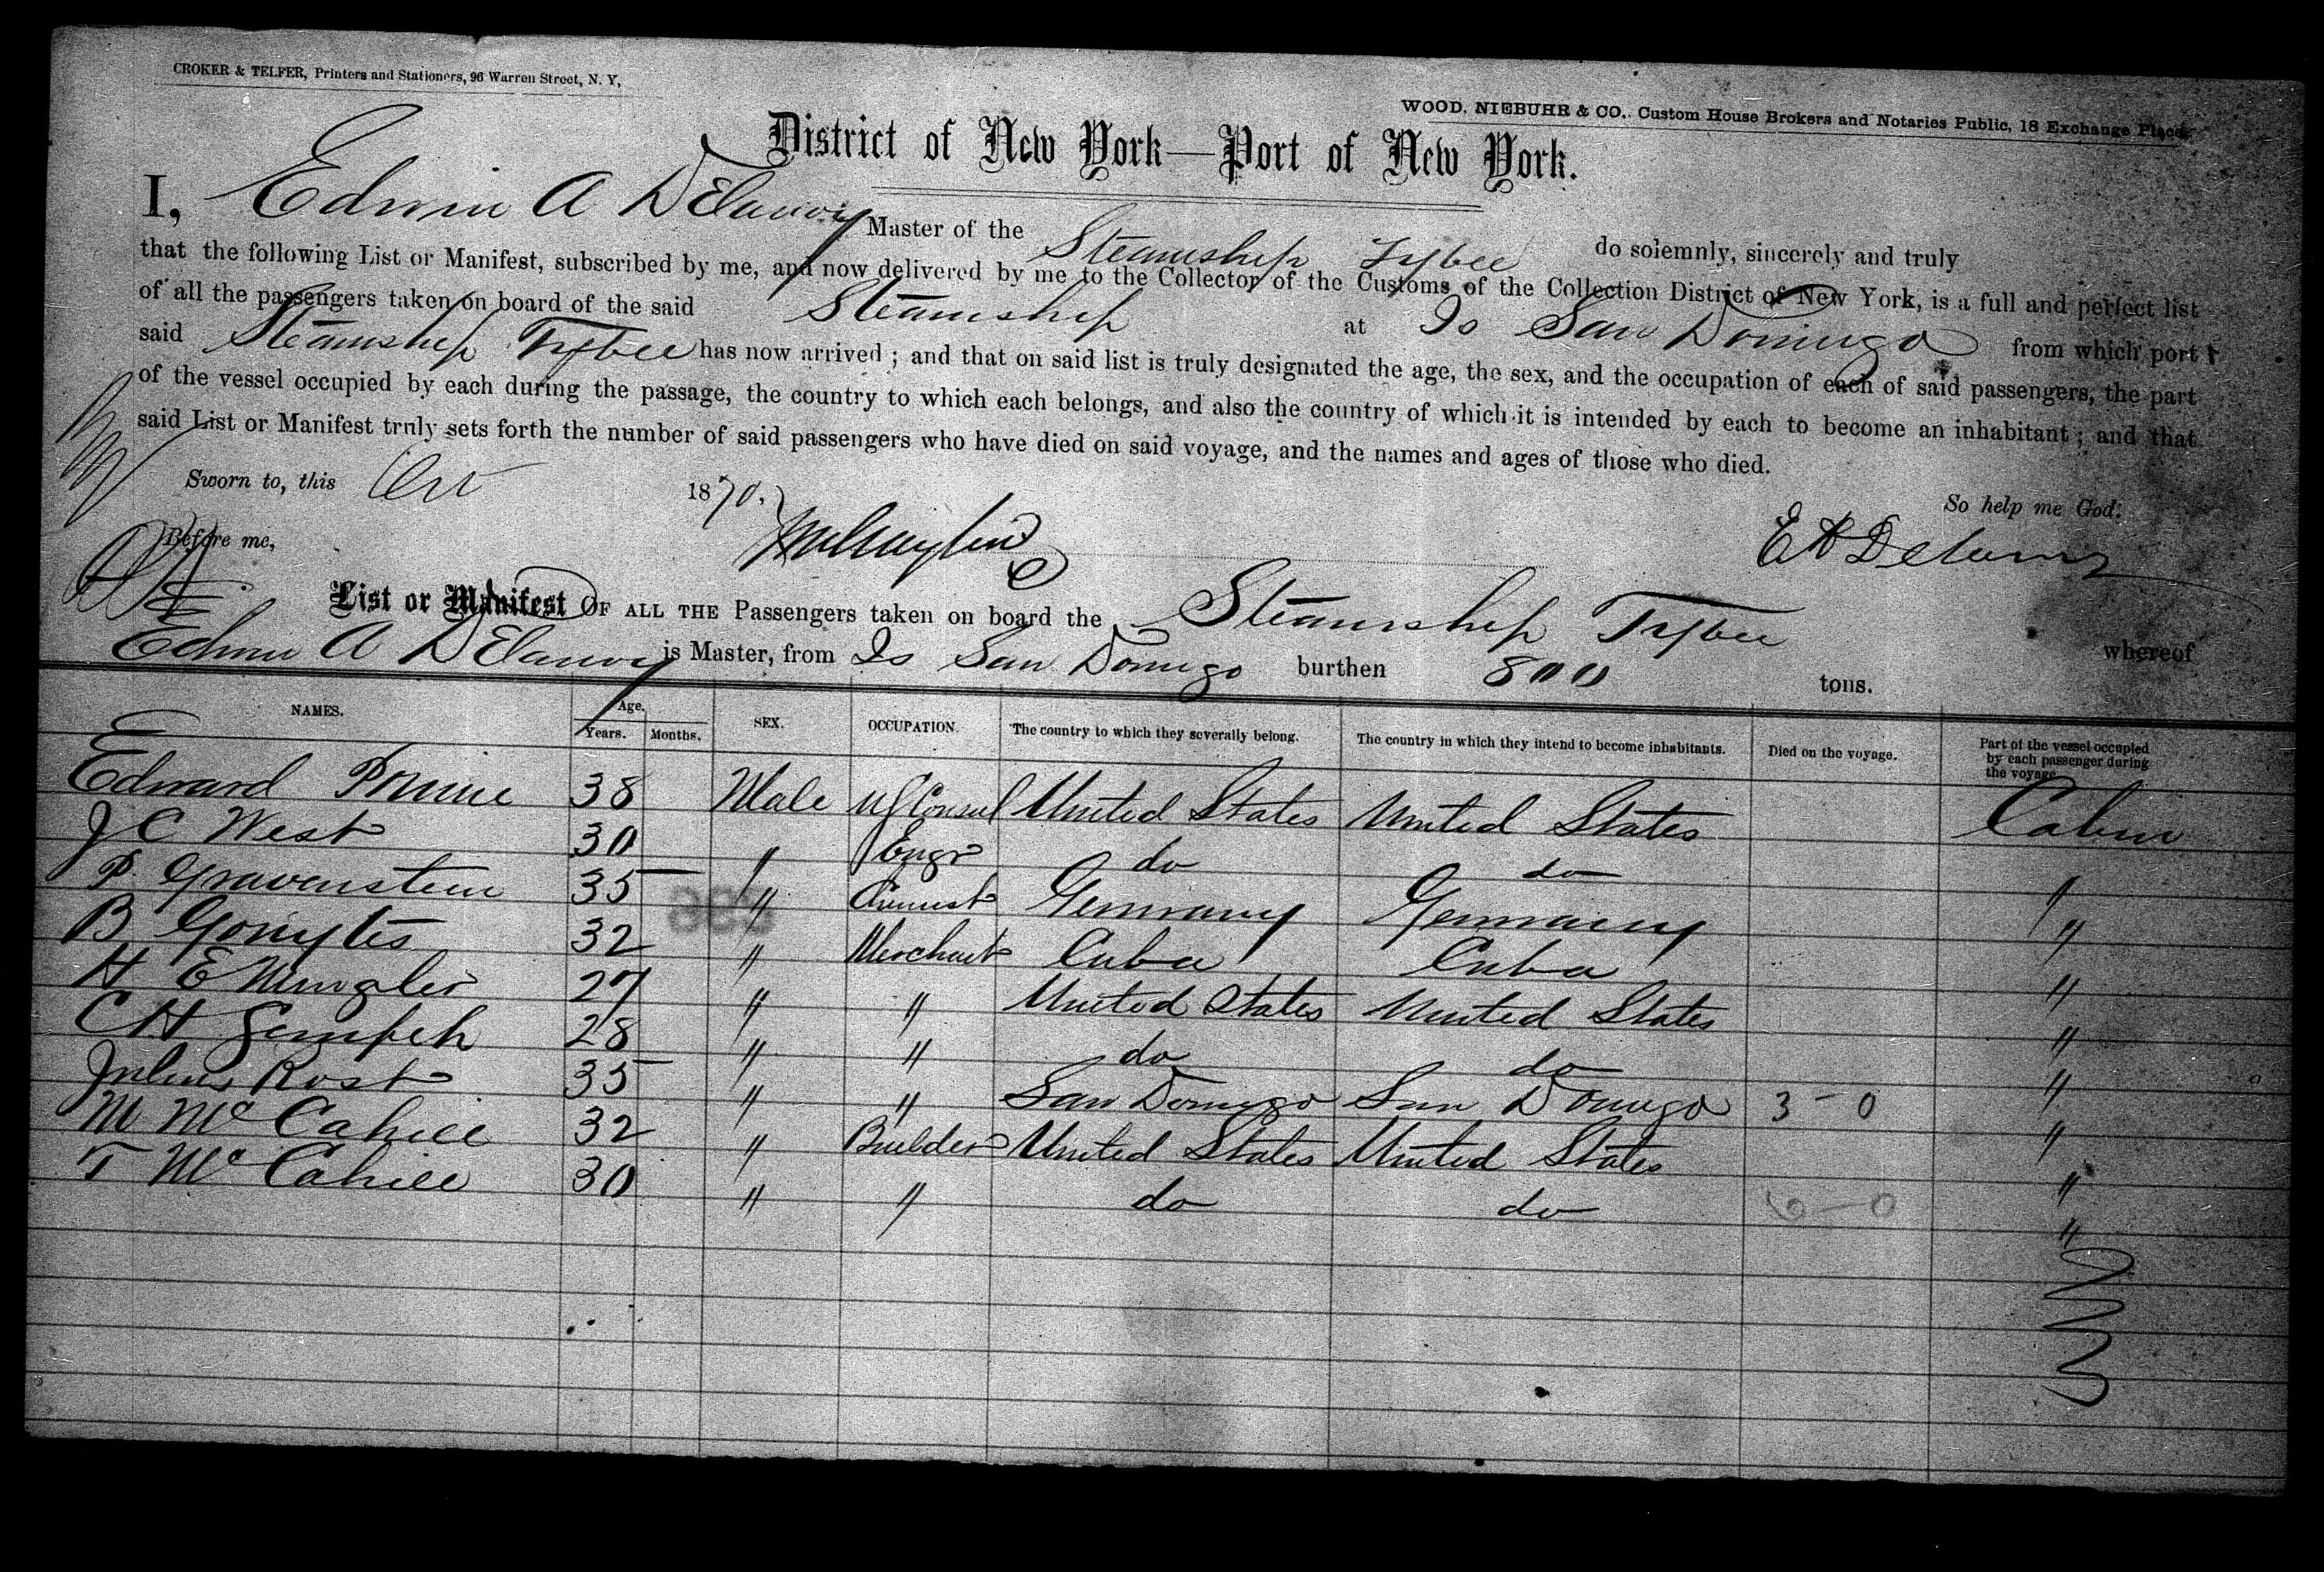 CROKER & TELFER, Printers and Stationers, 96 Warren Street, N. Y,
WOOD, NIEBUHR & CO., Custom House Brokers and Notaries Public, 18 Exchange Place,
District of New York—Port of New York.
I, Edwin A DElanoy Master of the Steamship Tybee do solemnly, sincerely and truly
that the following List or Manifest, subscribed by me, and now delivered by me to the Collector of the Customs of the Collection District of New York, is a full and perfect list
of all the passengers taken on board of the said Steamship at San Domingo from which port
said Steamship Tybee has now arrived ; and that on said list is truly designated the age, the sex, and the occupation of each of said passengers, the part
of the vessel occupied by each during the passage, the country to which each belongs, and also the country of which it is intended by each to become an inhabitant ; and that
said List or Manifest truly sets forth the number of said passengers who have died on said voyage, and the names and ages of those who died.
Sworn to, this 1870. So help me God:
Before me, E A Delanoy
List or Manifest OF ALL THE Passengers taken on board the Steamship Tybee whereof
Edwin A DElanoy is Master, from San Domingo burthen 800 tons.
NAMES. Age. Years. Months. SEX. OCCUPATION. The country to which they severally belong. The country in which they intend to become inhabitants. Died on the voyage. Part of the vessel occupied by each passenger during the voyage
Edward 38 Male US Consul United States United States Cabin
J C West 30 " Engr do do "
P. Gravenstein 35 " Germany Germany "
B 32 " Merchant Cuba Cuba "
H E 27 " " United States United States "
C H 28 " " do do "
Julius Rost 35 " " San Domingo San Domingo 3 - 0 "
M McCahill 32 " Builder United States United States "
T McCahill 30 " " do do 6 - 0 "